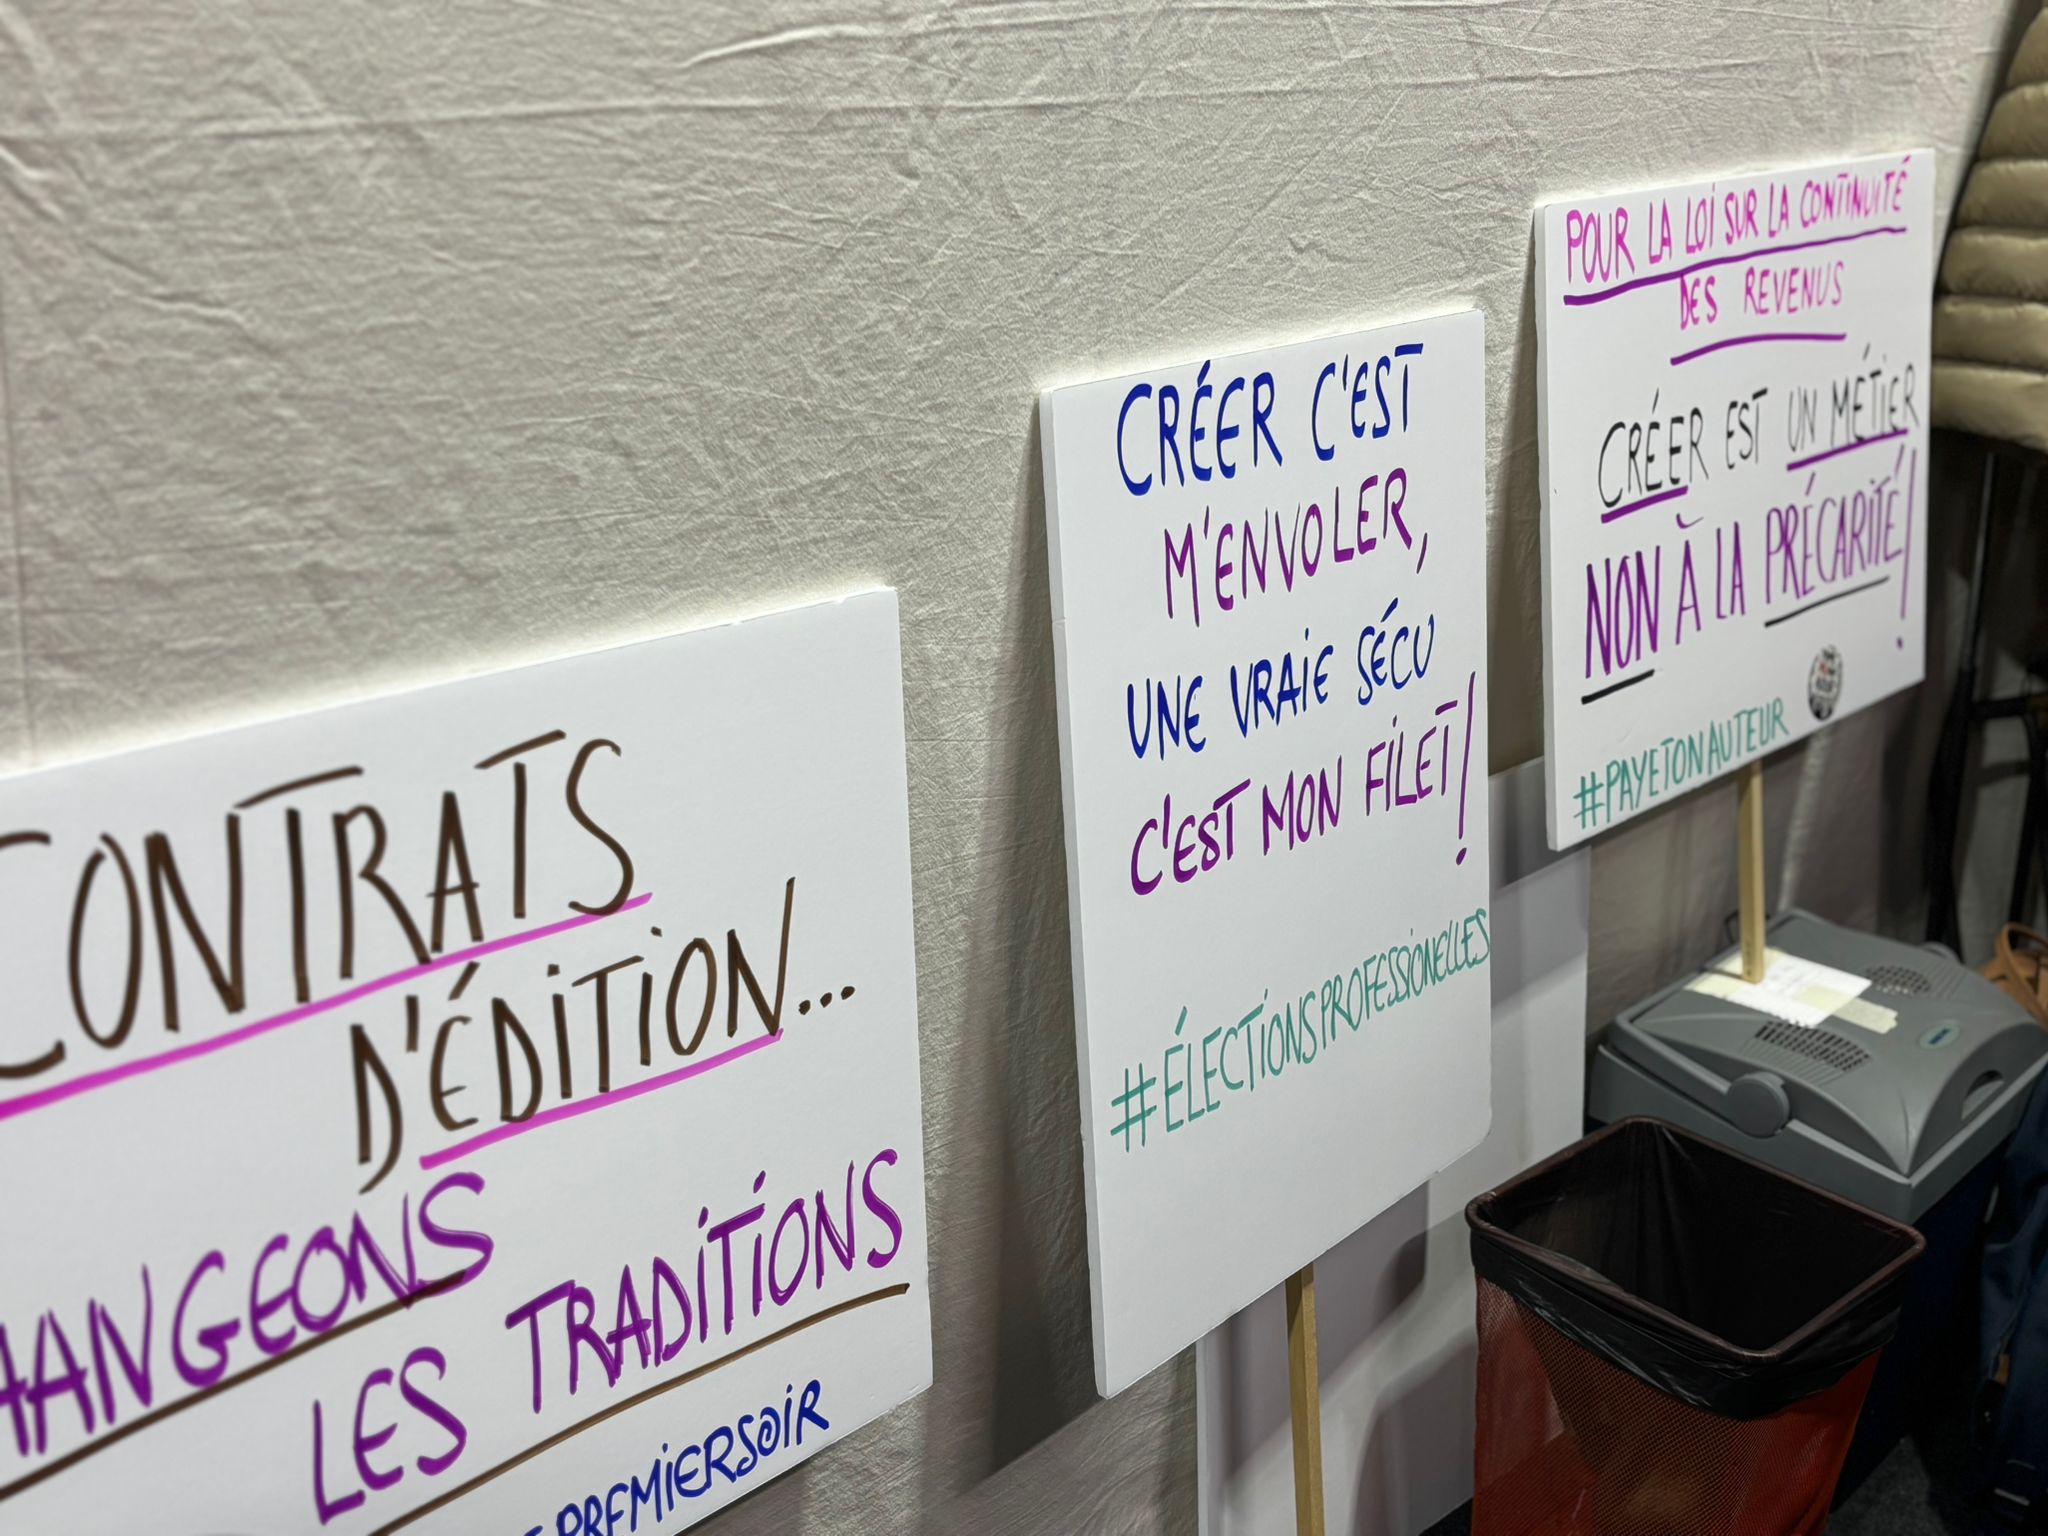 CONTRATS
D'ÉDITION...
HANGEONS
LES TRADITIONS
PREMIERSOIR
CRÉER C'EST
M'ENVOLER,
UNE VRAIE SÉCU
C'EST MON FILET !
#ÉLECTIONSPROFESSIONELLES
POUR LA LOI SUR LA CONTINUITÉ
DES REVENUS
CRÉER EST UN MÉTIER
NON À LA PRÉCARITÉ !
#PAYETONAUTEUR